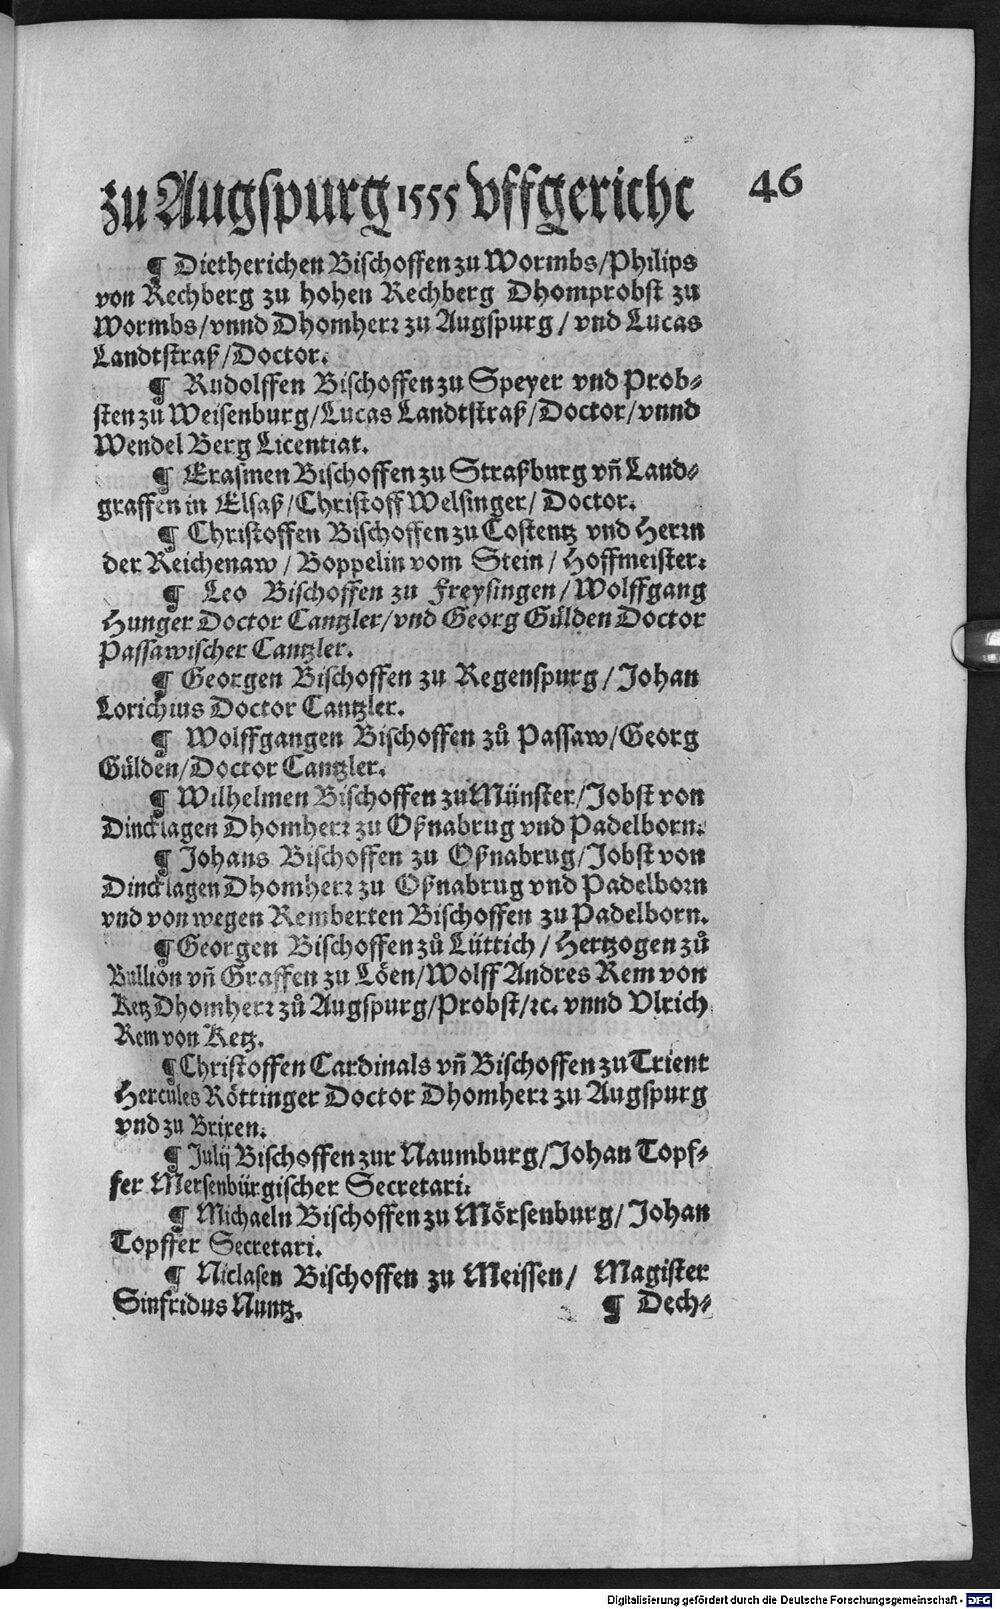 zu Augspurg 1555 vffgericht 46
¶ Dietherichen Bischoffen zu Wormbs/Philips
von Rechberg zu hohen Rechberg Dhomprobst zu
Wormbs/vnnd Dhomherꝛ zu Augspurg/vnd Lucas
Landtstraß/Doctor.
¶ Rudolffen Bischoffen zu Speyer vnd Prob⸗
sten zu Weisenburg/Lucas Landtstraß/Doctor/vnnd
Wendel Berg Licentiat.
¶ Erasmen Bischoffen zu Straßburg vñ Land⸗
graffen in Elsaß/Christoff Welsinger/Doctor.
¶ Christoffen Bischoffen zu Costentz vnd Herrn
der Reichenaw/Boppelin vom Stein/Hoffmeister.
¶ Leo Bischoffen zu Freysingen/Wolffgang
Hunger Doctor Cantzler/vnd Georg Gülden Doctor
Passawischer Cantzler.
¶ Georgen Bischoffen zu Regenspurg/Johan
Lorichius Doctor Cantzler.
¶ Wolffgangen Bischoffen zů Passaw/Georg
Gülden/Doctor Cantzler.
¶ Wilhelmen Bischoffen zu Münster/Jobst von
Dincklagen Dhomherꝛ zu Oßnabrug vnd Padelborn.
¶ Johans Bischoffen zu Oßnabrug/Jobst von
Dincklagen Dhomherꝛ zu Oßnabrug vnd Padelborn
vnd von wegen Remberten Bischoffen zu Padelborn.
¶ Georgen Bischoffen zů Lüttich/Hertzogen zů
Bullion vñ Graffen zu Löen/Wolff Andres Rem von
Ketz Dhomherꝛ zů Augspurg/Probst/ꝛc. vnnd Vlrich
Rem von Ketz.
¶ Christoffen Cardinals vñ Bischoffen zu Trient
Hercules Röttinger Doctor Dhomherꝛ zu Augspurg
vnd zu Brixen.
¶ Julij Bischoffen zur Naumburg/Johan Topf⸗
fer Mersenbürgischer Secretari.
¶ Michaeln Bischoffen zu Mörsenburg/Johan
Topffer Secretari.
¶ Niclasen Bischoffen zu Meissen/Magister
Sinfridus Nuntz. ¶ Dech⸗
Digitalisierung gefördert durch die Deutsche Forschungsgemeinschaft - DFG